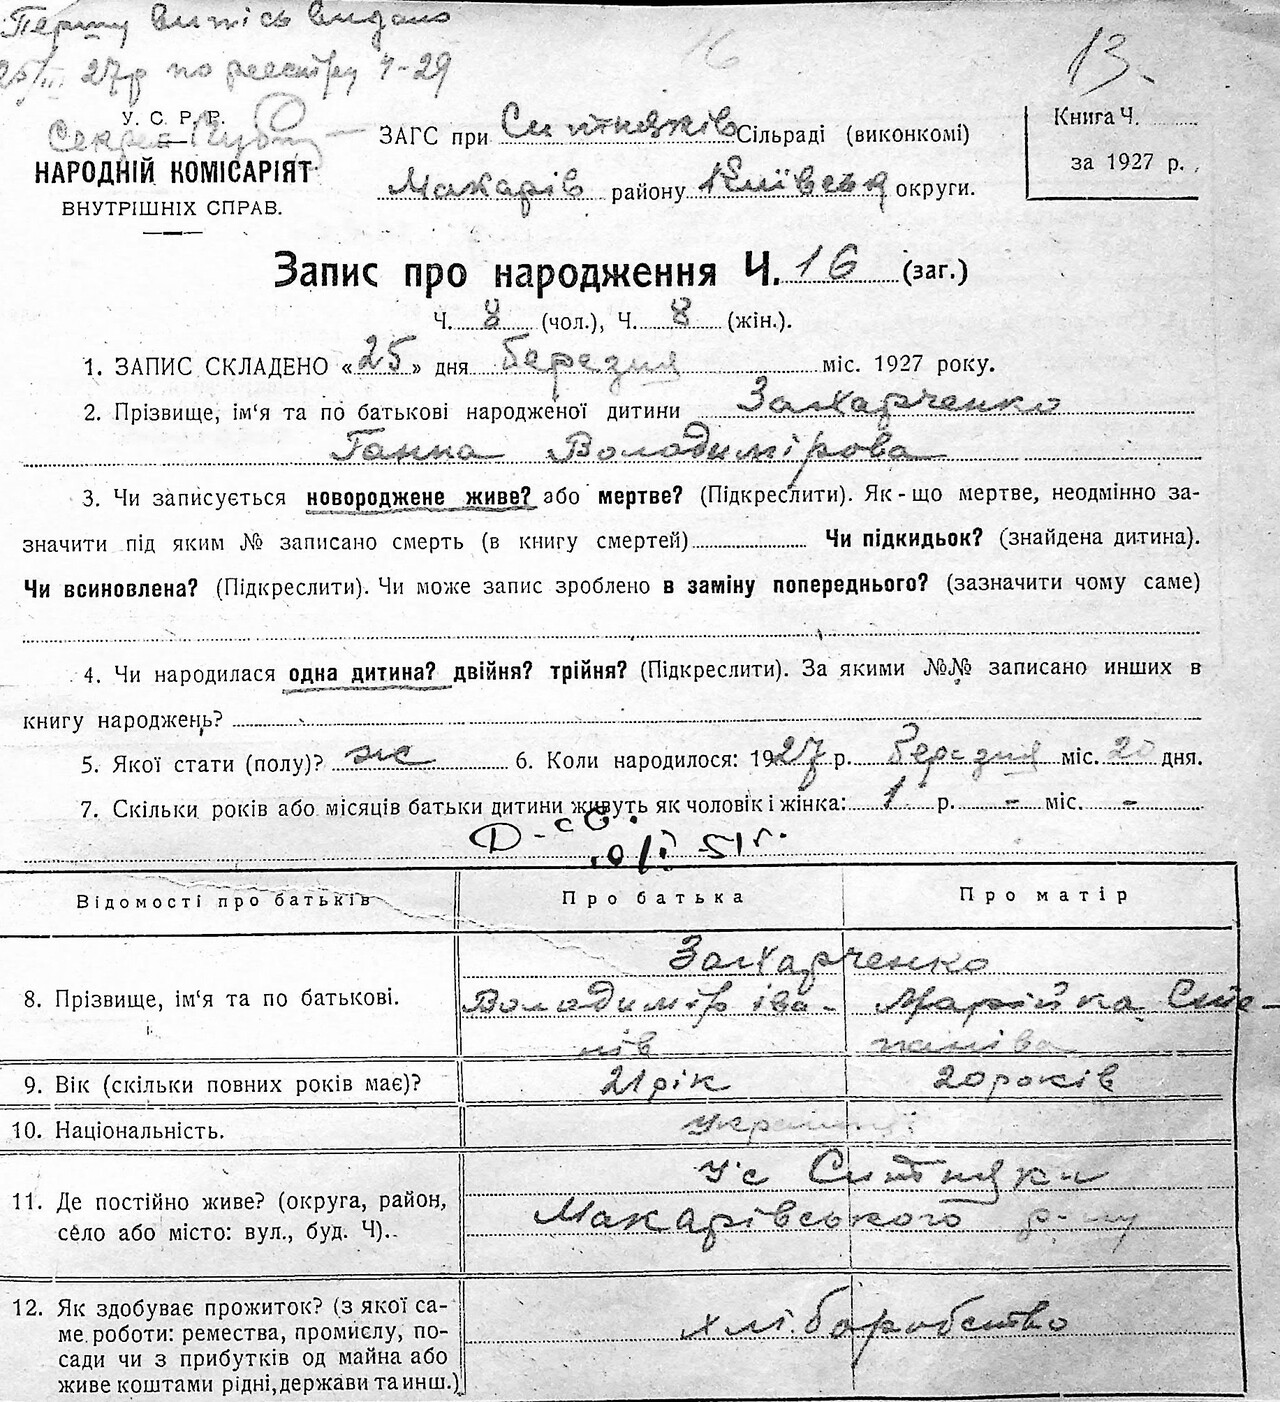 Першу випись видано
25/III 27р по реєстру 4-29
16
13.
У. С. Р. Р.
Секрет
НАРОДНІЙ КОМІСАРІЯТ
ВНУТРІШНІХ СПРАВ.
ЗАГС при Ситняків Сільраді (виконкомі)
Макарів району Київська округи.
Книга Ч. ........
за 1927 р.
Запис про народження Ч. 16 (заг.)
Ч. 8 (чол.), Ч. 8 (жін.).
1. ЗАПИС СКЛАДЕНО «25» дня березня міс. 1927 року.
2. Прізвище, ім'я та по батькові народженої дитини Захарченко
Ганна Володимірова
3. Чи записується новороджене живе? або мертве? (Підкреслити). Як-що мертве, неодмінно за-
значити під яким № записано смерть (в книгу смертей) Чи підкидьок? (знайдена дитина).
Чи всиновлена? (Підкреслити). Чи може запис зроблено в заміну попереднього? (зазначити чому саме)
4. Чи народилася одна дитина? двійня? трійня? (Підкреслити). За якими №№ записано инших в
книгу народжень?
5. Якої стати (полу)? ж 6. Коли народилося: 1927 р. березня міс. 20 дня.
7. Скільки років або місяців батьки дитини живуть як чоловік і жінка: 1 р. - міс. -
Відомості про батьків Про батька Про матір
Захарченко
8. Прізвище, ім'я та по батькові. Володимір Іва- Марійка Сте-
нів панівa
9. Вік (скільки повних років має)? 21 рік 20 років
10. Національність. українці
11. Де постійно живе? (округа, район, У с Ситняки
село або місто: вул., буд. Ч). Макарівського р-ну
12. Як здобуває прожиток? (з якої са-
ме роботи: ремества, промислу, по- хліборобство
сади чи з прибутків од майна або
живе коштами рідні, держави та инш.)